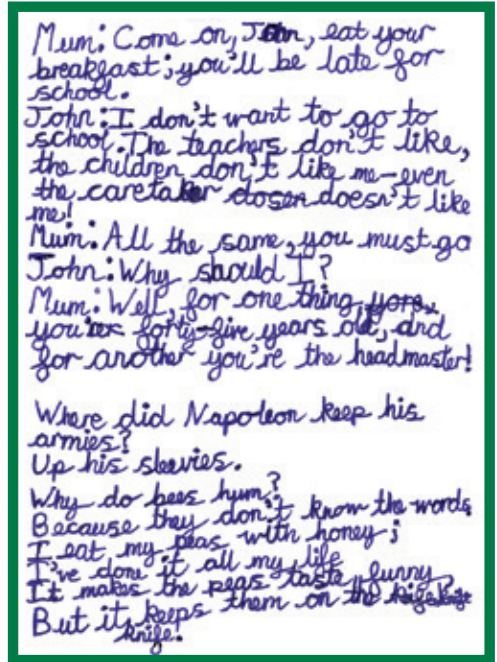 Mum: Come on, John, eat your
breakfast; you'll be late for
school.
John: I don't want to go to
school. The teachers don't like,
the children don't like me – even
the caretaker dosen doesn't like
me!
Mum: All the same, you must go
John: Why should I?
Mum: Well, for one thing yore,
you're forty-five years old, and
for another you're the headmaster!
Where did Napoleon keep his
armies?
Up his sleevies.
Why do bees hum?
Because they don't know the words
I eat my peas with honey;
I've done it all my life
It makes the peas taste funny,
But it keeps them on the
knife!